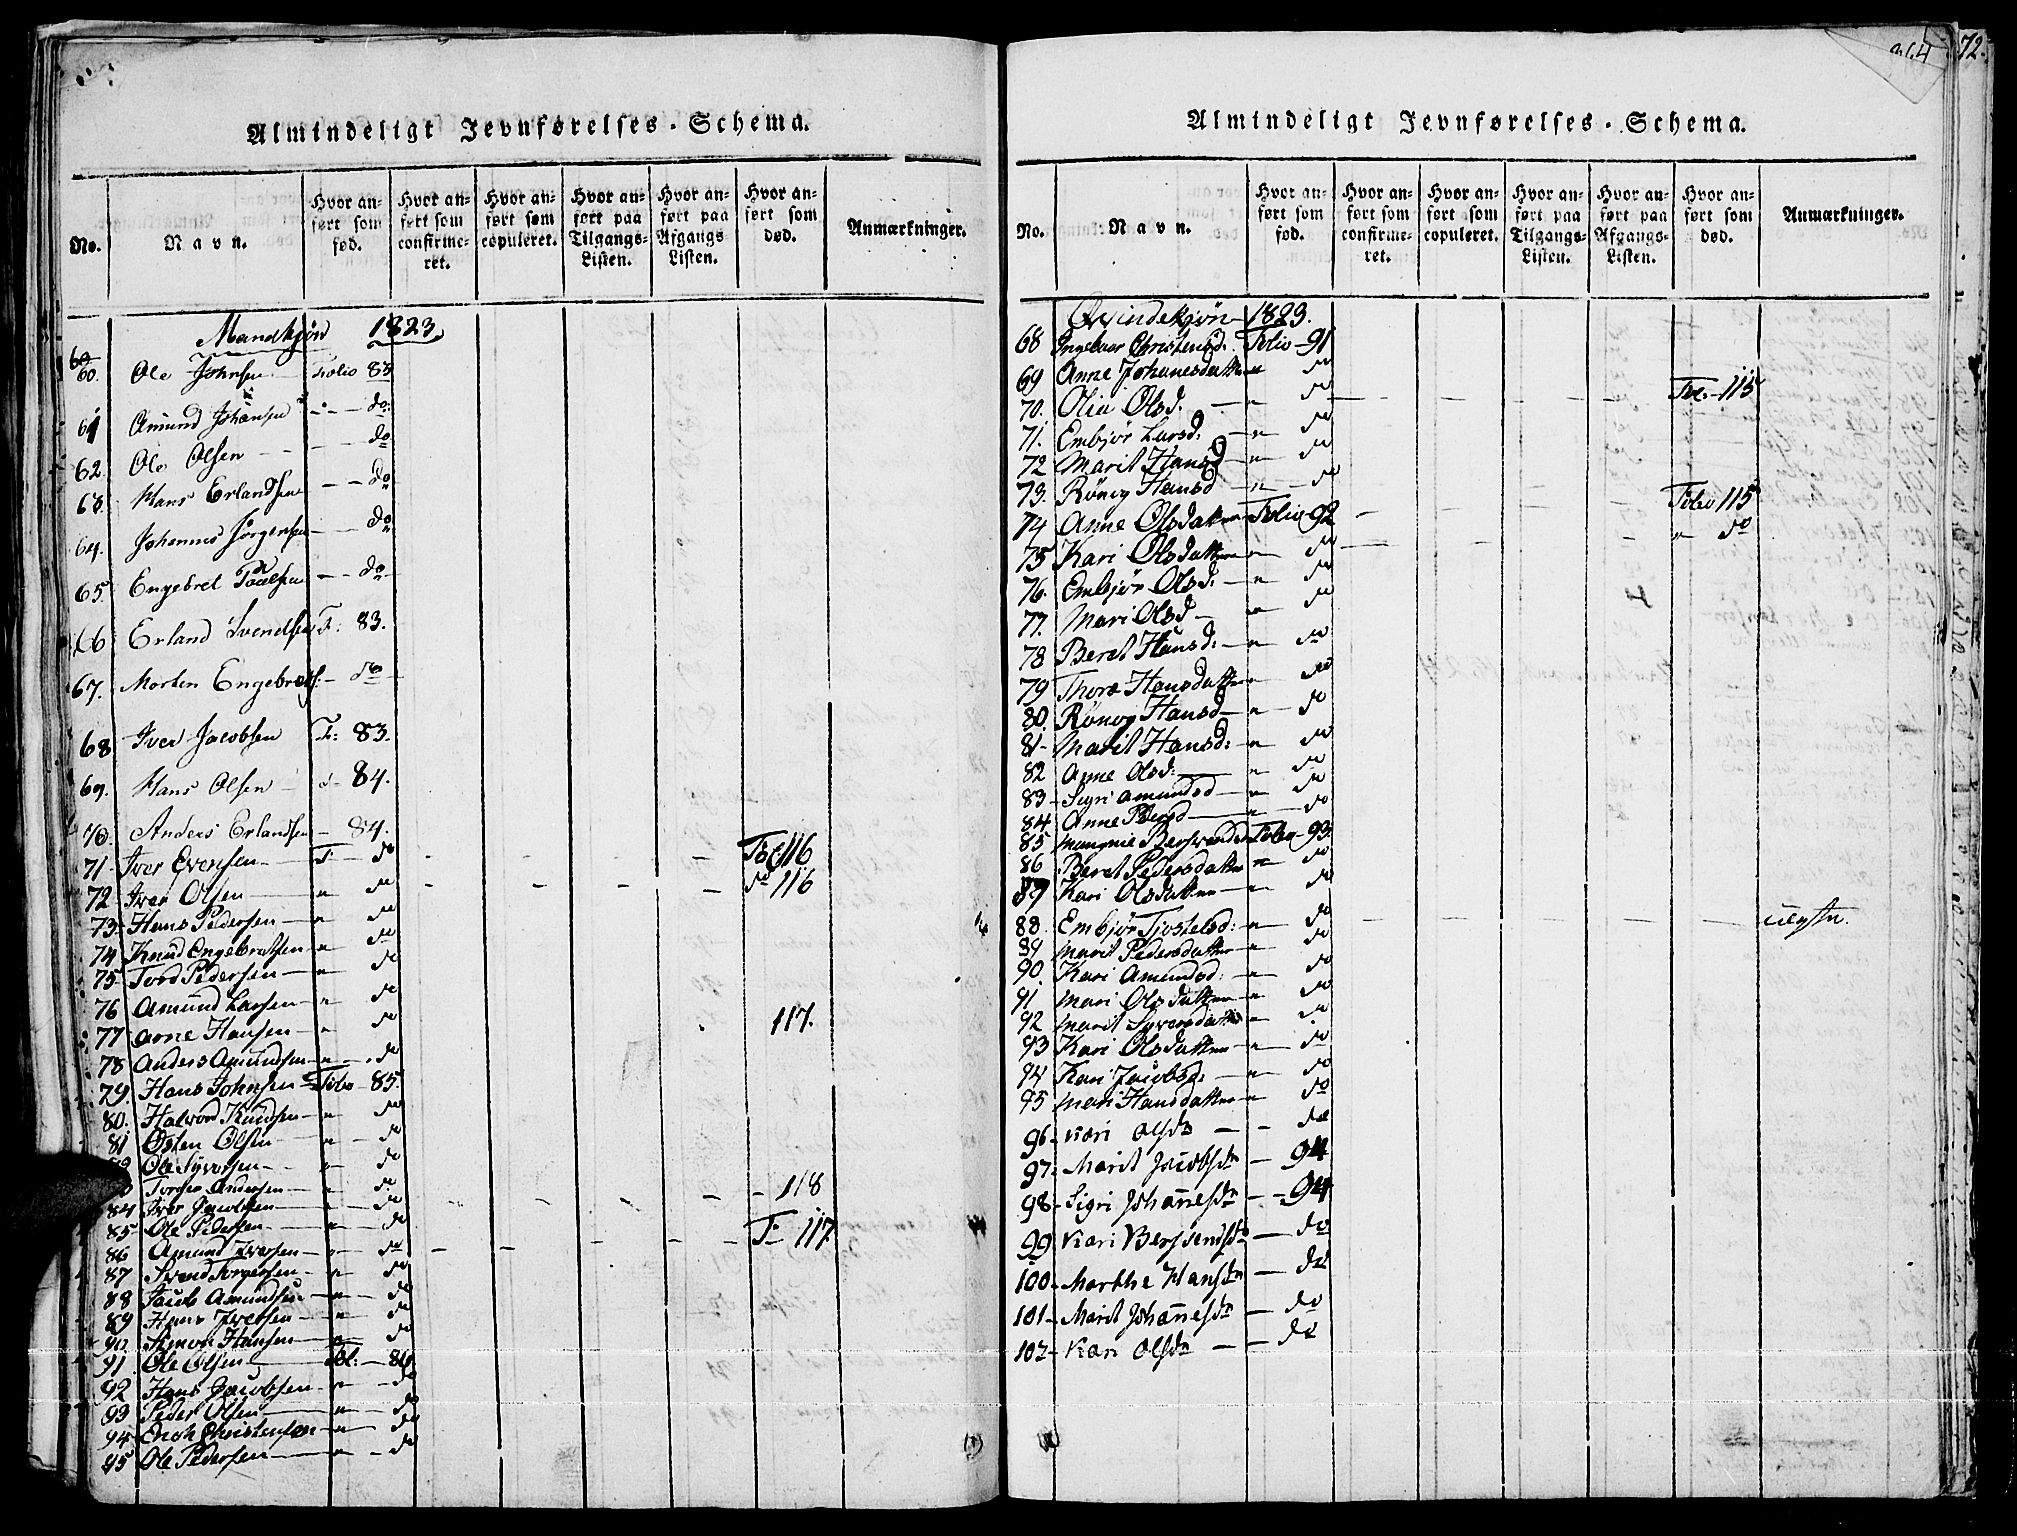 Almindeligt Jevnførelses-Schema.
No.
Navn.
Hvor anført som fød.
Hvor anført som confirmeret.
Hvor anført som copuleret.
Hvor anført paa Tilgangs-Listen.
Hvor anført paa Afgangs Listen.
Hvor anført som død.
Anmærkninger.
Mandkjøn 1823
60. Ole Johnsen — Folio 83
61 Amund Johansen — do
62. Ole Olsen — do
63. Hans Erlandsen — do
64. Johannes Jørgensen — do
65. Engebret Paalsen — do
66 Erland Svendsen F: 83.
67. Morten Engebretss. — do
68 Iver Jacobsen F: 83.
69. Hans Olsen — 84.
70. Anders Erlandsen — 84.
71 Iver Evensen — F. do — Fol 116
72 Iver Olsen — " do — do 116
73 Hans Pedersen — " do
74 Knud Engebretsen — " do
75 Tord Pedersen — " do
76 Amund Larsen — " do
77 Arne Hansen — " do 117.
78 Anders Amundsen — " do
79. Hans Johnsen Folio 85.
80. Halvord Knudsen — " do
81 Østen Olsen — " do
Ole Syversen — " do
Torger Andersen — " do — 118
84 Iver Jacobsen — " do
85 Ole Pedersen — " do F — 117
86 Amund Iversen — " do
87 Svend Torgersen — " do
88 Jacob Amundsen — " do
89 Hans Iversen — " do
90 Simon Hansen — " do
91. Ole Olsen — Fol: — 86.
92 Hans Jacobsen — " do
93 Peder Olsen — " do
94 Erich Christensen — " do
95 Ole Pedersen — " do
364
72.
Almindeligt Jevnførelses-Schema.
No.
Navn.
Hvor anført som fød.
Hvor anført som confirmeret.
Hvor anført som copuleret.
Hvor anført paa Tilgangs-Listen.
Hvor anført paa Afgangs-Listen.
Hvor anført som død.
Anmærkninger.
Qvindekjøn 1823.
68 Ingebor Christensd. Folio — 91
69 Anne Johanesdatter " do
70. Olia Olsd. — " do — Fol. — 115
71. Embjør Larsd: — " do
72 Marit Hansd — " do
73. Rønog Hansd — " do — Folio 115
74 Anne Olsdatter Folio 92 — " do
75 Kari Olsdatter " do
76. Embjør Olsd: — " do
77. Mari Olsd — " do
78 Beret Hansd: — " do
79 Thora Hansdatter " do
80. Rønog Hansd — " do
81 Marit Hansd: — " do
82 Anne Olsd: — " do
83 Sigri Amundsd — " do
84 Anne Pedersd — " do
85 Folio — 93.
86 Beret Pedersdatter " do
87 Kari Olsdatter — " do
88. Embjør Tjostelsd: — " do
89 Marit Pedersdatter " do
90. Kari Amundsd: — " do
91 Mari Olsdatter — " do
92 Marit Syversdatter " do
93 Kari Olsdatter — " do
94 Kari Jacobsd: — " do
95 Mari Hansdatter — " do
96 Kari Olsdr — do
97. Marit Jacobsdr — 94
98 Sigri Johannesdr — 94
99 Kari Bersvendsdr — do
100 Marthe Hansdr — do
101 Marit Johannesdr — do
102 Kari Olsdr — do